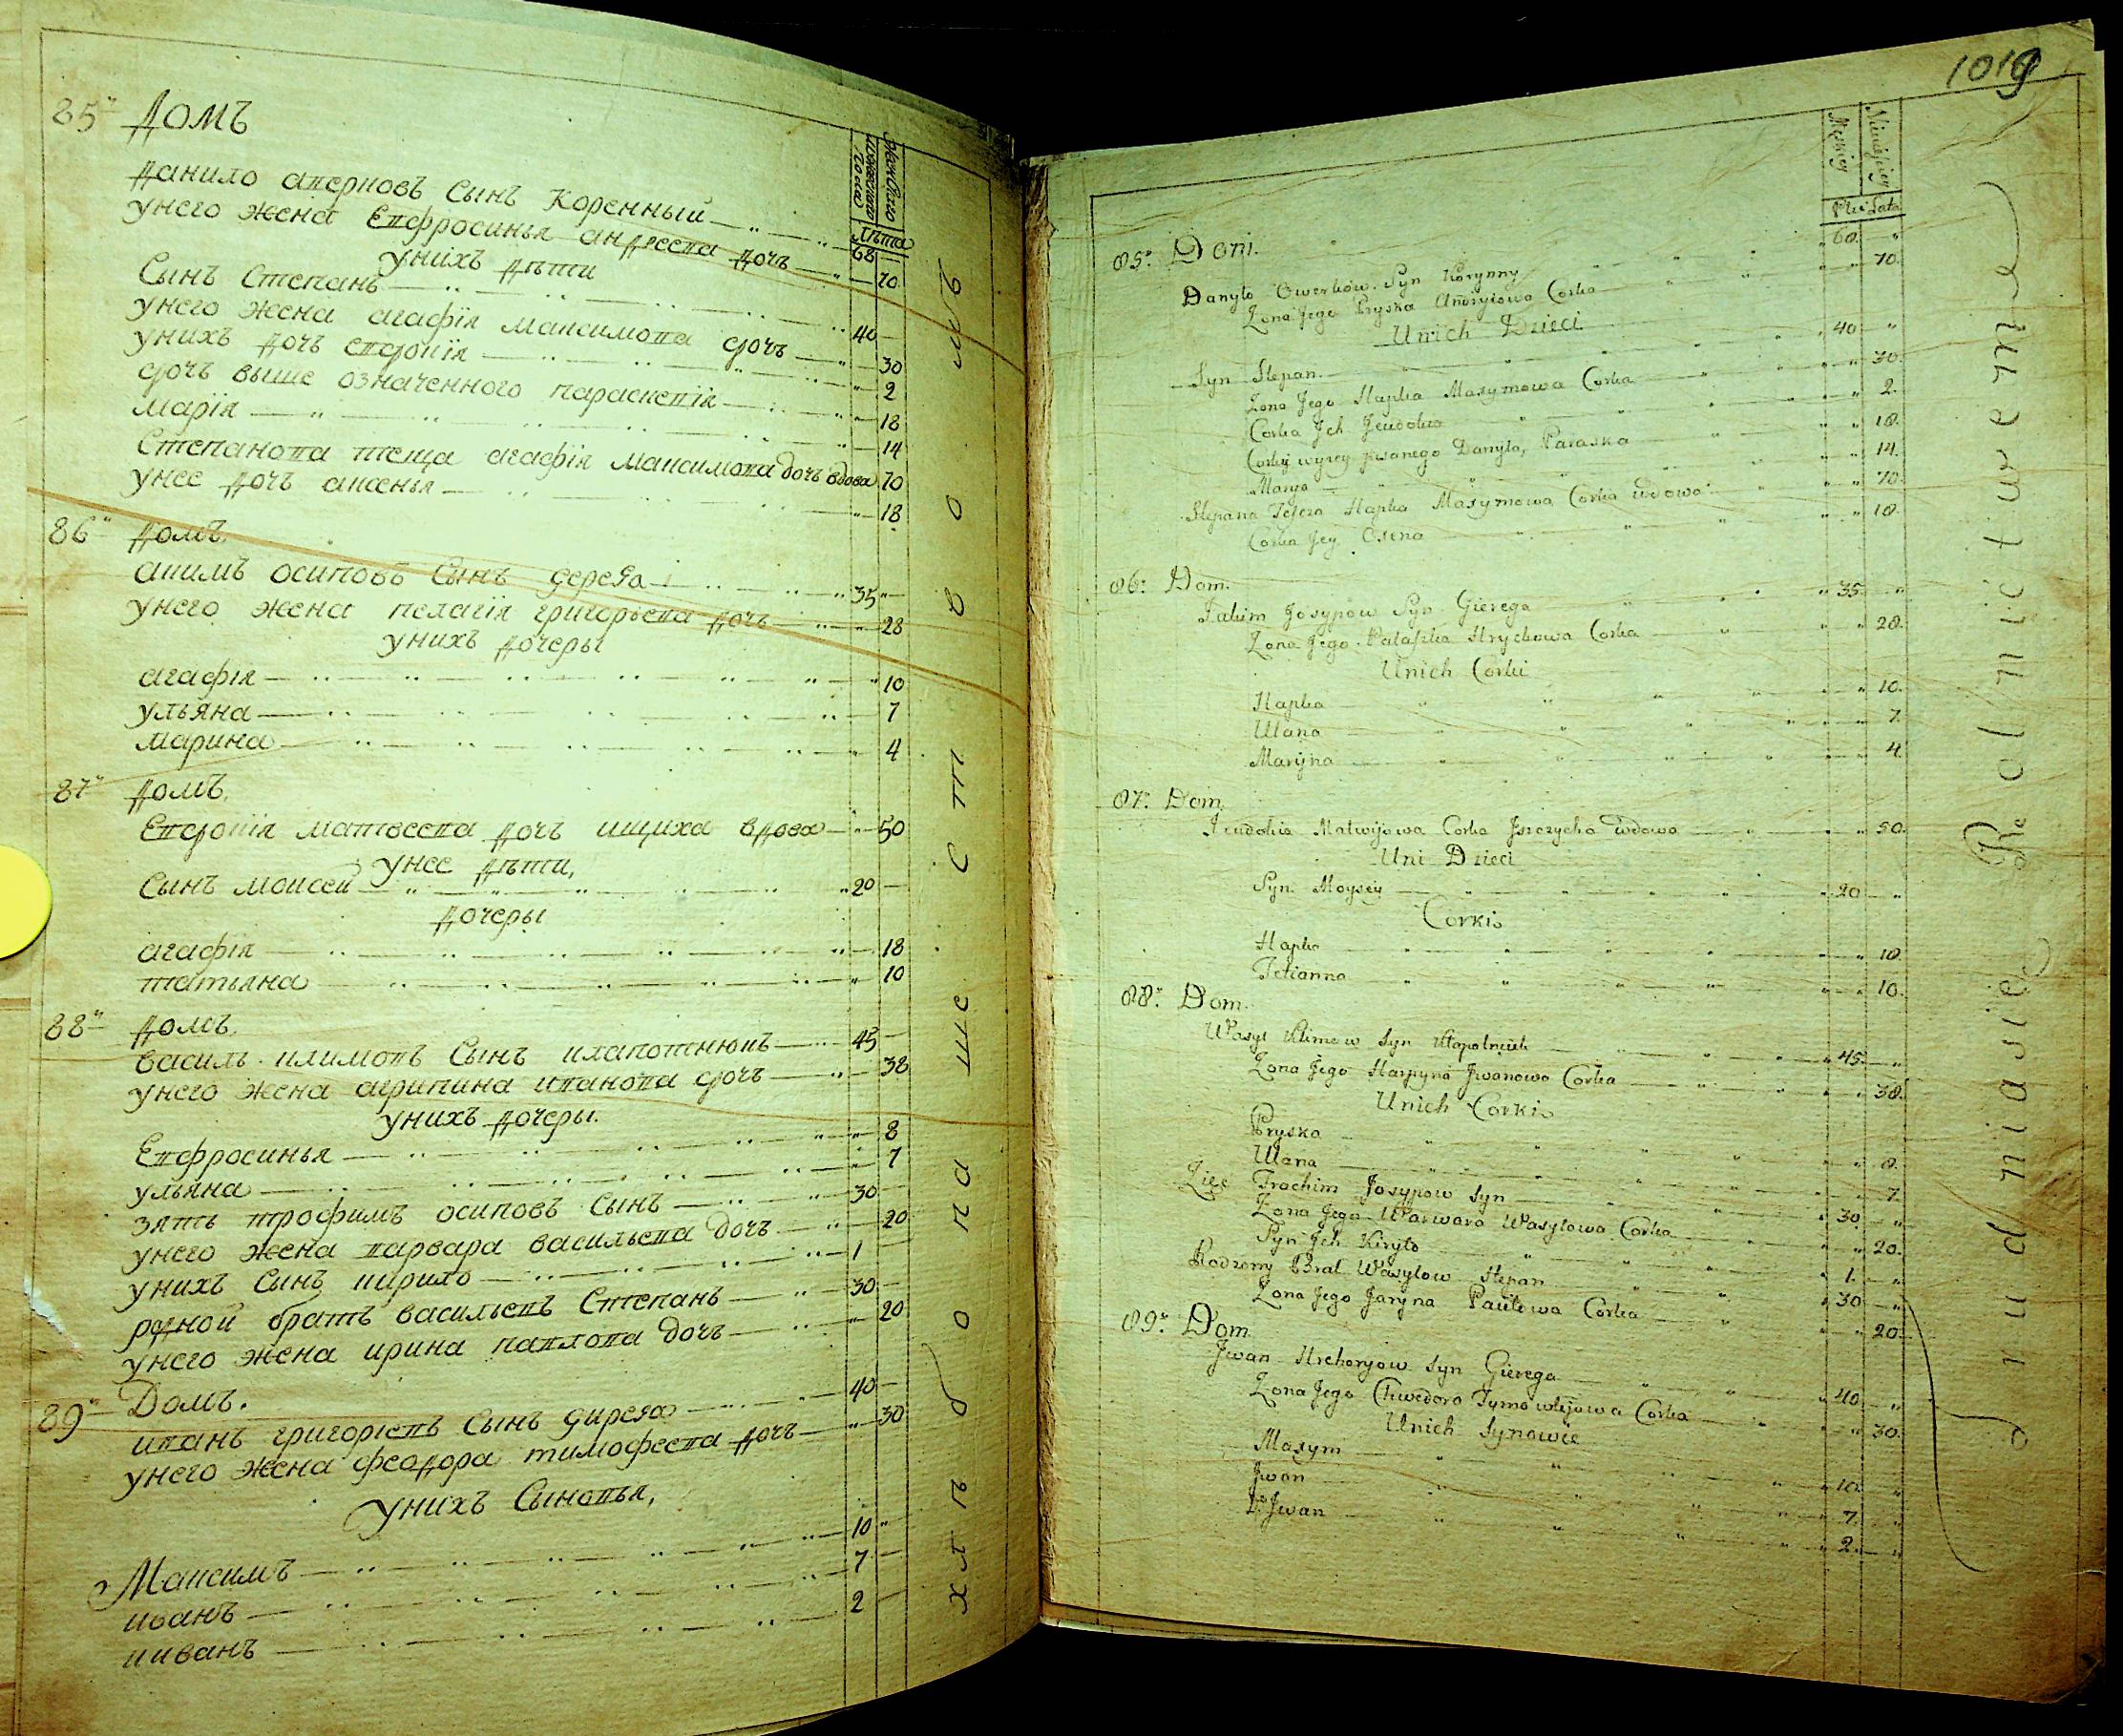 85 Домъ
Женского
мужеского
полу
лѣта
Данило аверковъ Сынъ Коренный 68
унего жена Евфросинья андреева дочь 70
унихъ дѣти
Сынъ Степанъ 40
унего жена агафія максимова дочь 30
унихъ дочь евдокія 2
дочь выше означенного параскевія 18
марія 14
Степанова теща агафія максимова дочь вдова 70
унее дочь аксенья 18
86 Домъ.
акимъ осиповъ Сынъ герега 35
унего жена пелагія григорьева дочь 28
унихъ дочеры
агафія 10
ульяна 7
марина 4
87 Домъ.
Евдокія матвеева дочь ищиха вдова 50
унее дѣти,
Сынъ моисей 20
дочеры
агафія 18
татьяна 10
88 Домъ.
василь климовъ Сынъ клапотнюкъ 45
унего жена агрипина иванова дочь 38
унихъ дочеры.
Евфросинья 8
ульяна 7
зять трофимъ осиповъ Сынъ 30
унего жена варвара васильева дочь 20
унихъ Сынъ кирило 1
родной братъ васильевъ Степанъ 30
унего жена ирина павлова дочь 20
89 Домъ.
иванъ григоріевъ Сынъ гирега 40
унего жена феодора тимофеева дочь 30
унихъ Сыновья,
Максимъ 10
иванъ 7
иванъ 2
хлѣбопашество мъ
1019
Męskiey
Niewieściey
Płci Lata
85. Dom.
Danyło Owerkow Syn Korynny 60
Zona Jego Pryska Andryiowa Corka 70
Unich Dzieci
Syn Stepan 40
Zona Jego Hapka Maxymowa Corka 30
Corka Jch Jeudokia 2
Corky wyzey pisanego Danyła, Paraska 18
Marya 14
Stepana Teszcza Hapka Maxymowa Corka wdowa 70
Corka Jey Oxena 18
86. Dom.
Jakim Josypow Syn Gierega 35
Zona Jego Pałaszka Hrychowa Corka 28
Unich Corki
Hapka 10
Ulana 7
Maryna 4
87. Dom.
Jeudokia Matwijowa Corka Jszczycha wdowa 50
Uni Dzieci
Syn Moysey 20
Corki
Hapka 18
Tetianna 10
88. Dom.
Wasyl Klimow Syn Kłapotniuk 45
Zona Jego Harpyna Jwanowa Corka 38
Unich Corki
Pryska 8
Ulana 7
Zięć Trochim Josypow Syn 30
Zona Jego Warwara Wasylowa Corka 20
Syn Jch Kiryło 1
Rodzony Brat Wasylow Stepan 30
Zona Jego Jaryna Pawłowa Corka 20
89. Dom
Jwan Hrehoryow Syn Gierega 40
Zona Jego Chwedora Tymofiejowa Corka 30
Unich Synowie
Maxym 10
Jwan 7
2. Jwan 2
trudnią się Rolnictwem